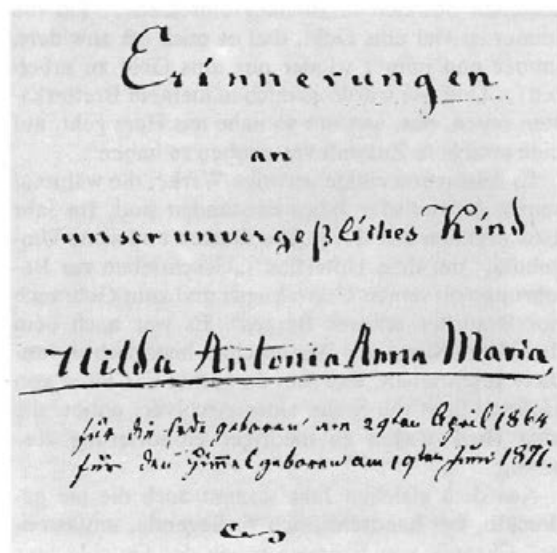 Erinnerungen
an
unser unvergeßliches Kind
Hilda Antonia Anna Maria,
für die Erde geboren am 29ten April 1864
für den Himmel geboren am 19ten Juni 1871.